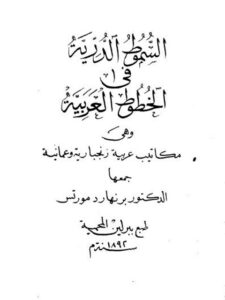 السموط الدرية
في
الخطوط العربية
وهي
مكاتيب عربية زنجبارية وعمانية
جمعها
الدكتور برنهارد مورتس
طبع ببرلين المحمية
سنة ١٨٩٢ م